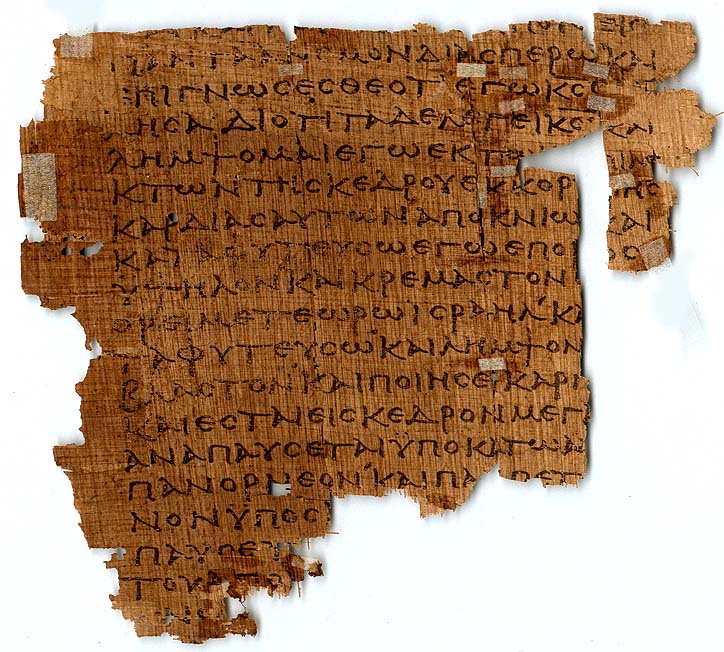 ΠΑΝΤΑΑΝΕΜΟΝΔΙΑϹΠΕΡΩΚΑΙ
ΕΠΙΓΝΩϹΕϹΘΕΟΤ ΕΓΩΚϹ
ΛΗϹΑΔΙΟΤΙΤΑΔΕΛΕΓΕΙΚϹ ΚΑΙ
ΛΗΜΨΟΜΑΙΕΓΩΕΚΤ
ΚΤΩΝΤΗϹΚΕΔΡΟΥΕΚΚΟΡ
ΚΑΡΔΙΑϹΑΥΤΩΝΑΠΟΚΝΙΩΚΑΙ
ΚΑΤΑΦΥΤΕΥϹΩΕΓΩΕΠΟ
ΥΨΗΛΟΝΚΑΙΚΡΕΜΑϹΤΟΝ
ΟΡΕΙΜΕΤΕΩΡΩΙϹΡΑΗΛΚΑ
ΤΑΦΥΤΕΥϹΩΚΑΙΛΗΜΨΟΝ
ΒΛΑϹΤΟΝΚΑΙΠΟΙΗϹΕΙΚΑΡΠ
ΚΑΙΕϹΤΑΙΕΙϹΚΕΔΡΟΝΜΕΓ
ΑΝΑΠΑΥϹΕΤΑΙΥΠΟΚΑΤΩΑ
ΠΑΝΟΡΝΕΟΝΚΑΙΠΑ ΠΕΤ
ΝΟΝΥΠΟϹ
ΠΑΥϹΕΤ
ΤΟΥΑΠΟ